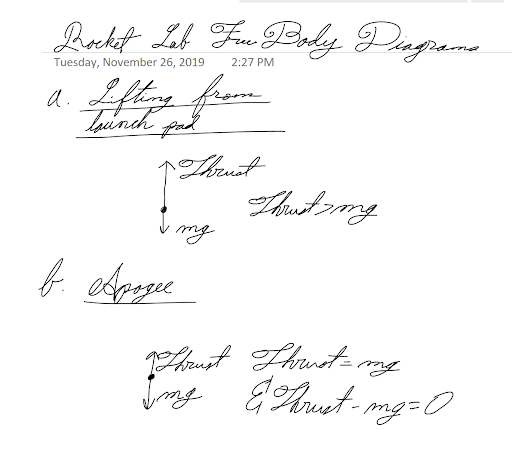 Rocket Lab Free Body Diagrams
Tuesday, November 26, 2019 2:27 PM
a. Lifting from
launch pad
Thrust
Thrust > mg
mg
b. Apogee
Thrust Thrust = mg
mg & Thrust - mg = 0